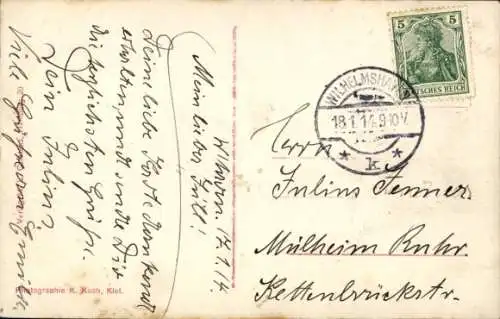 W'haven. 17.1.14
Mein lieber Juls!
Deine liebe Karte dankend
erhalten und sende Dir
die herzlichsten Grüße.
Dein Julius
Viele
Photographie K. Koch, Kiel.
5 5
DEUTSCHES REICH
WILHELMSHAVEN
18.1.14.9-10V.
* k *
Herrn
Julius Jenner
Mülheim Ruhr.
Kettenbrückstr.